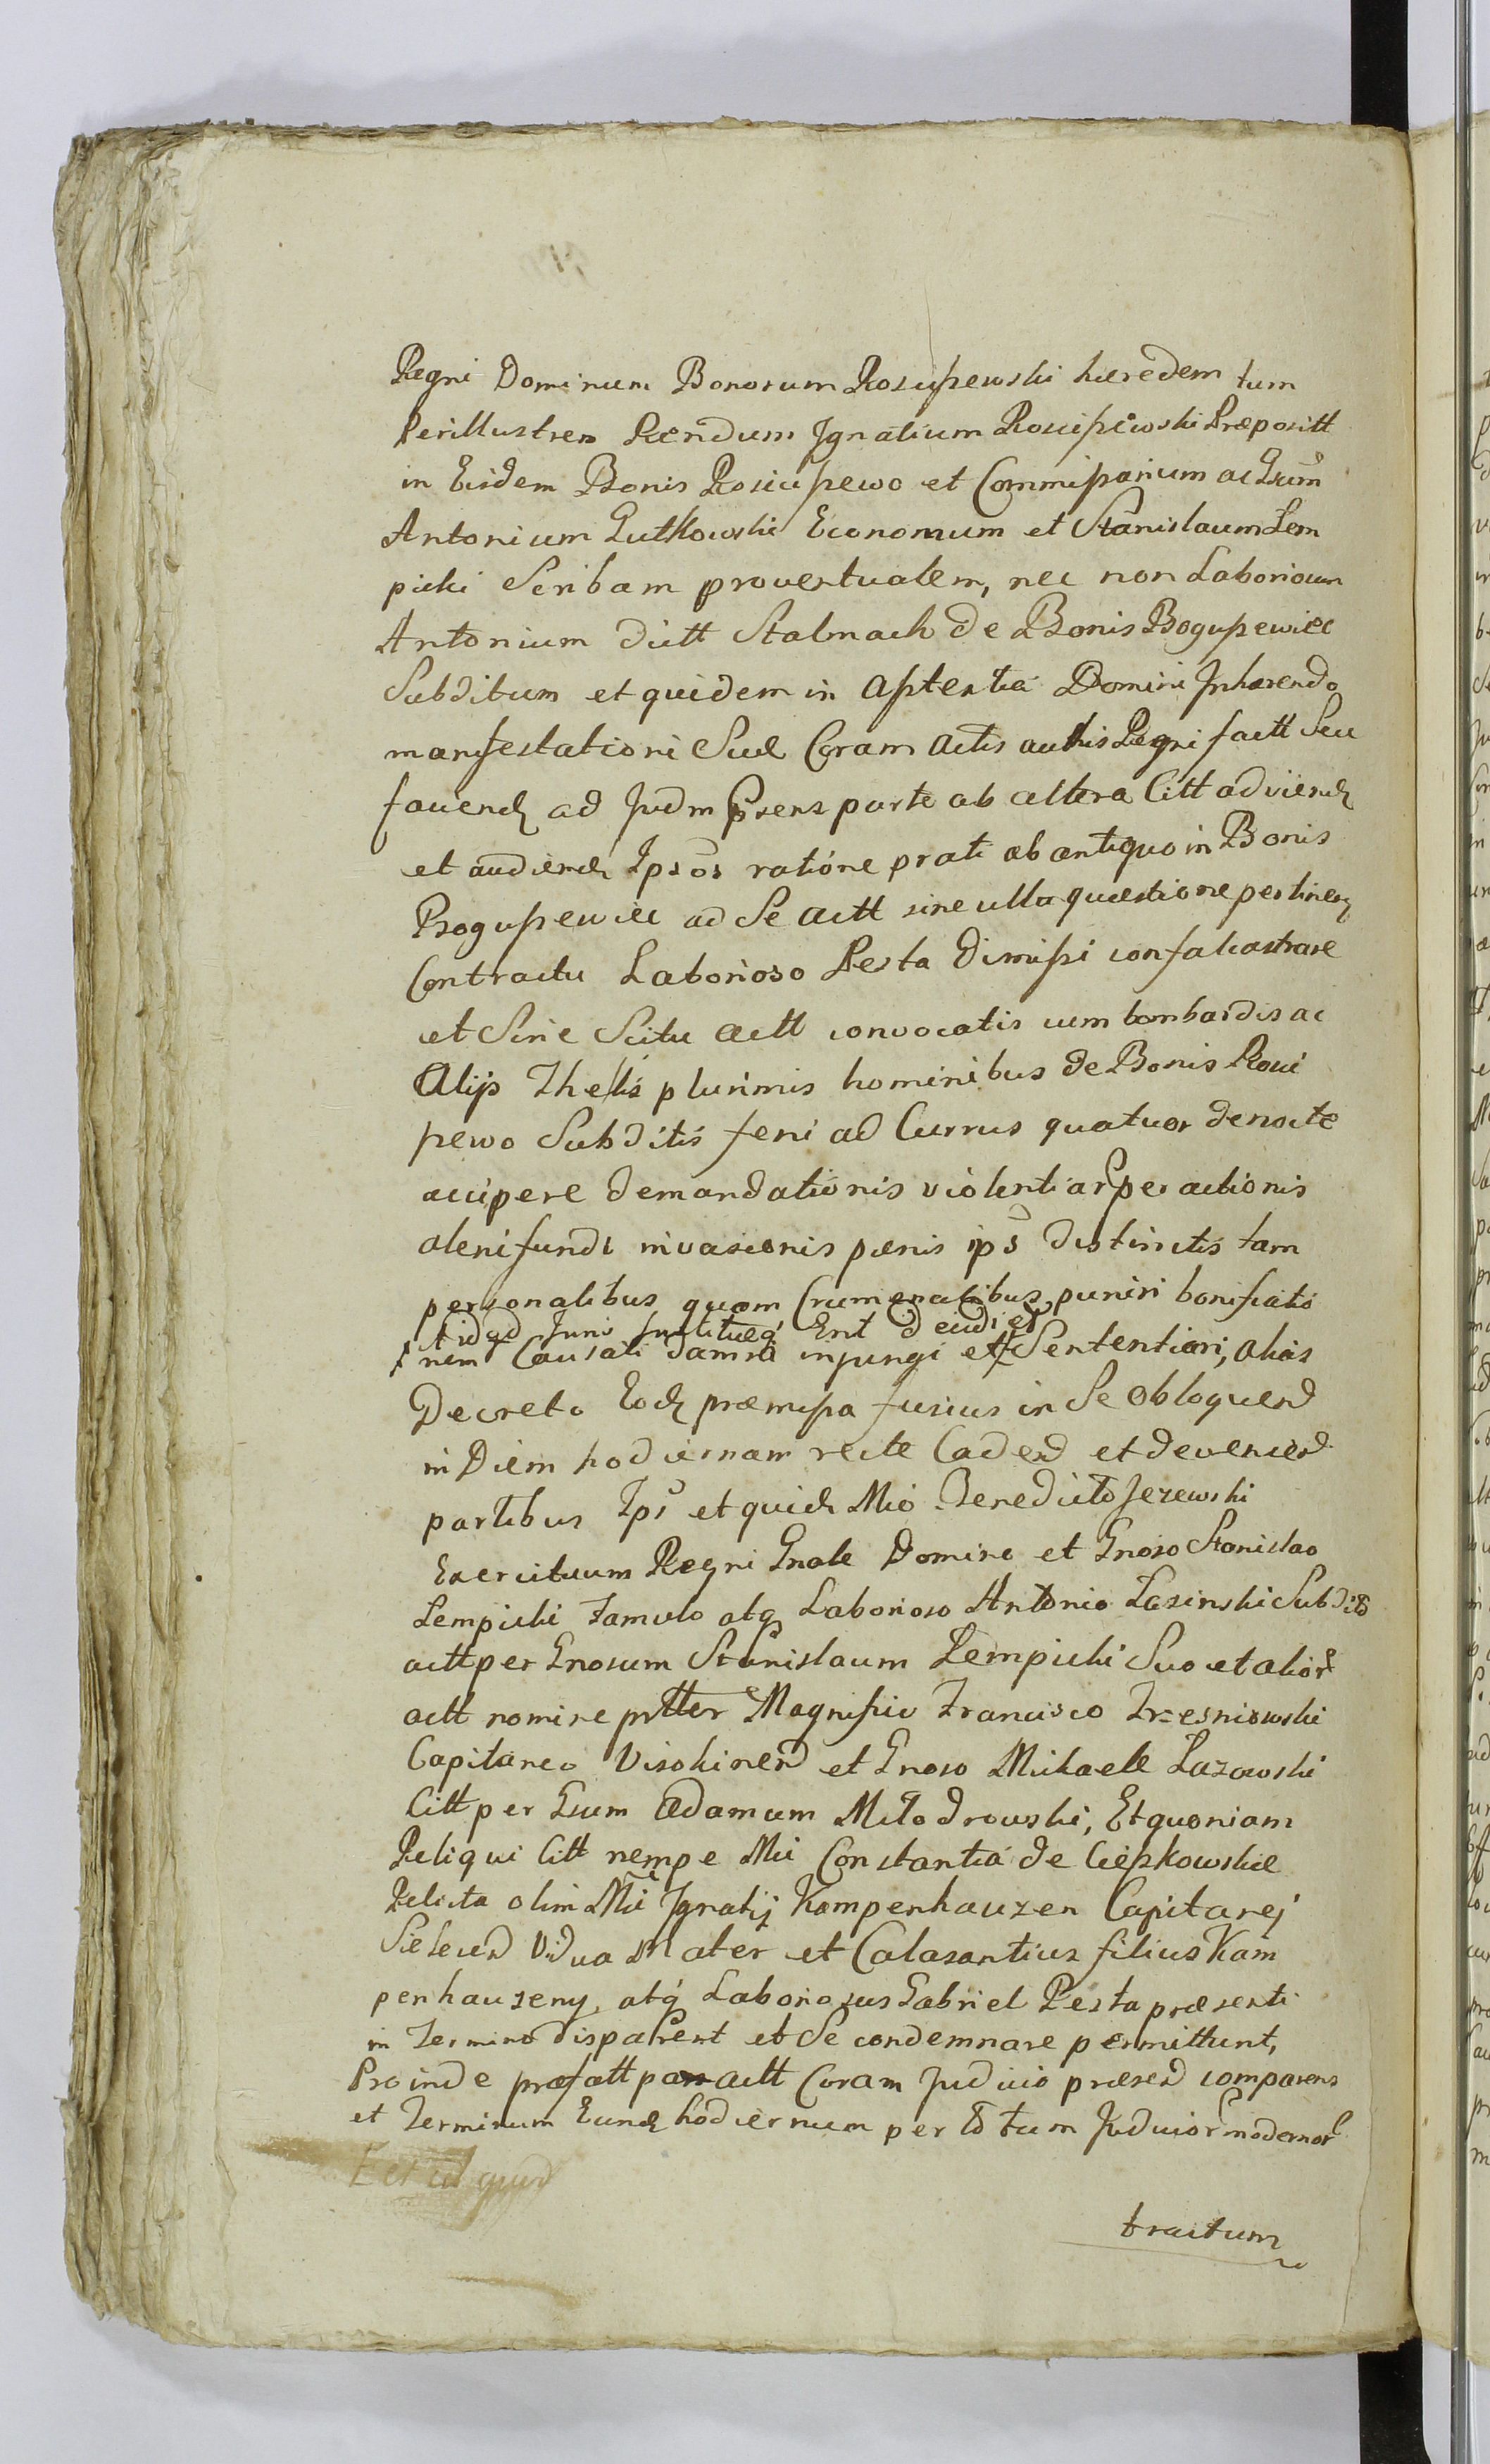 Regni Dominum Bonorum Rosciszewski hæredem tum
Perillustrem Rendum Ignatium Rosciszewski Præpositt
in Eisdem Bonis Rosciszewo et Commissarium ac Gsum
Antonium Gutkowski Economum et Stanislaum Lem
picki Scribam proventualem, nec non Laboriosum
Antonium dictt Stalmach de Bonis Boguszewiec
Subditum et quidem in assistentia Domini Inhærendo
manifestationi Suæ Coram Actis authis Regni factt Seu
faciend ad Judm Præsens parte ab altera Citt ad viend
et audiend Ipsos ratione prati ab antiquo in Bonis
Boguszewiec ad Se actt sine ulla quæstione pertinen
Contractu Laborioso Pesta dimissi confalcastrare
et Sine Scitu actt convocatis cum bombardis ac
Alijs Thelis plurimis hominibus de Bonis Rosci
szewo Subditis feni ad Currus quatuor de nocte
accipere demandationis violentiar peractionis
aleni fundi invasionis pœnis ips distinctis tam
personalibus quam Crumenalibus puniri bonificatio
Aid qd Juris Justitiæq Erit dejudi et
nem Causati damni injungi et Sententiari, alias
Decreto Eod præmissa fusius in Se obloquend
in Diem hodiernam recte Cadend et deveniend
partibus Ips et quid Mco Benedicto Jezewski
Exercituum Regni Gnale Domino et Gnoso Stanislao
Lempicki Famulo atq Laborioso Antonio Lasinski Subdito
actt per Gnosum Stanislaum Lempicki Suo et alior
actt nomine prtter Magnifico Francisco Trzesniowski
Capitaneo Visokinen et Gnoso Michaele Lazowski
Citt per Gsum Adamum Mitodrowski, Et quoniam
Reliqui Citt nempe Mci Constantia de Cieszkowskie
Relicta olim Mci Ignatij Kampenhauzen Capitanej
Vidua Mater et Calasantius filius Kam
penhauzeny, atq Laboriosus Gabriel Pesta præsenti
in Termino disparent et Se condemnare permittunt,
Proinde præfatt pars actt Coram Judicio præsend comparens
et Terminum Eund hodiernum per totum Judicior modernor
tractum